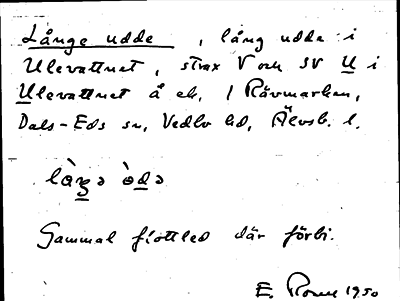 Långe udde, lång udde i
Ulevattnet, strax V och SV U i
Ulevattnet å ek. / Rävmarken,
Dals-Eds sn, Vedbo hd, Älvsb. l.
Gammal flottled där förbi.
E. 1950